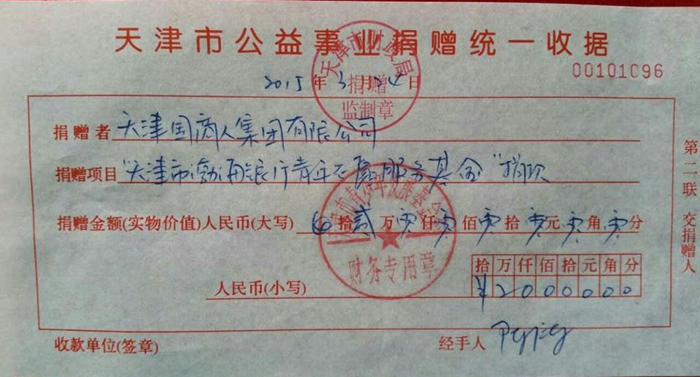 天津市公益事业捐赠统一收据
天津市财政局
捐赠
监制章
00101096
2015年3月24日
捐赠者 天津国商人集团有限公司
捐赠项目 "天津市渤海银行青年志愿服务基金"捐款
捐赠金额(实物价值)人民币(大写) 拾贰万零仟零佰零拾零元零角零分
财务专用章
拾万仟佰拾元角分
人民币(小写) ¥2000000
收款单位(签章) 经手人
第二联 交捐赠人